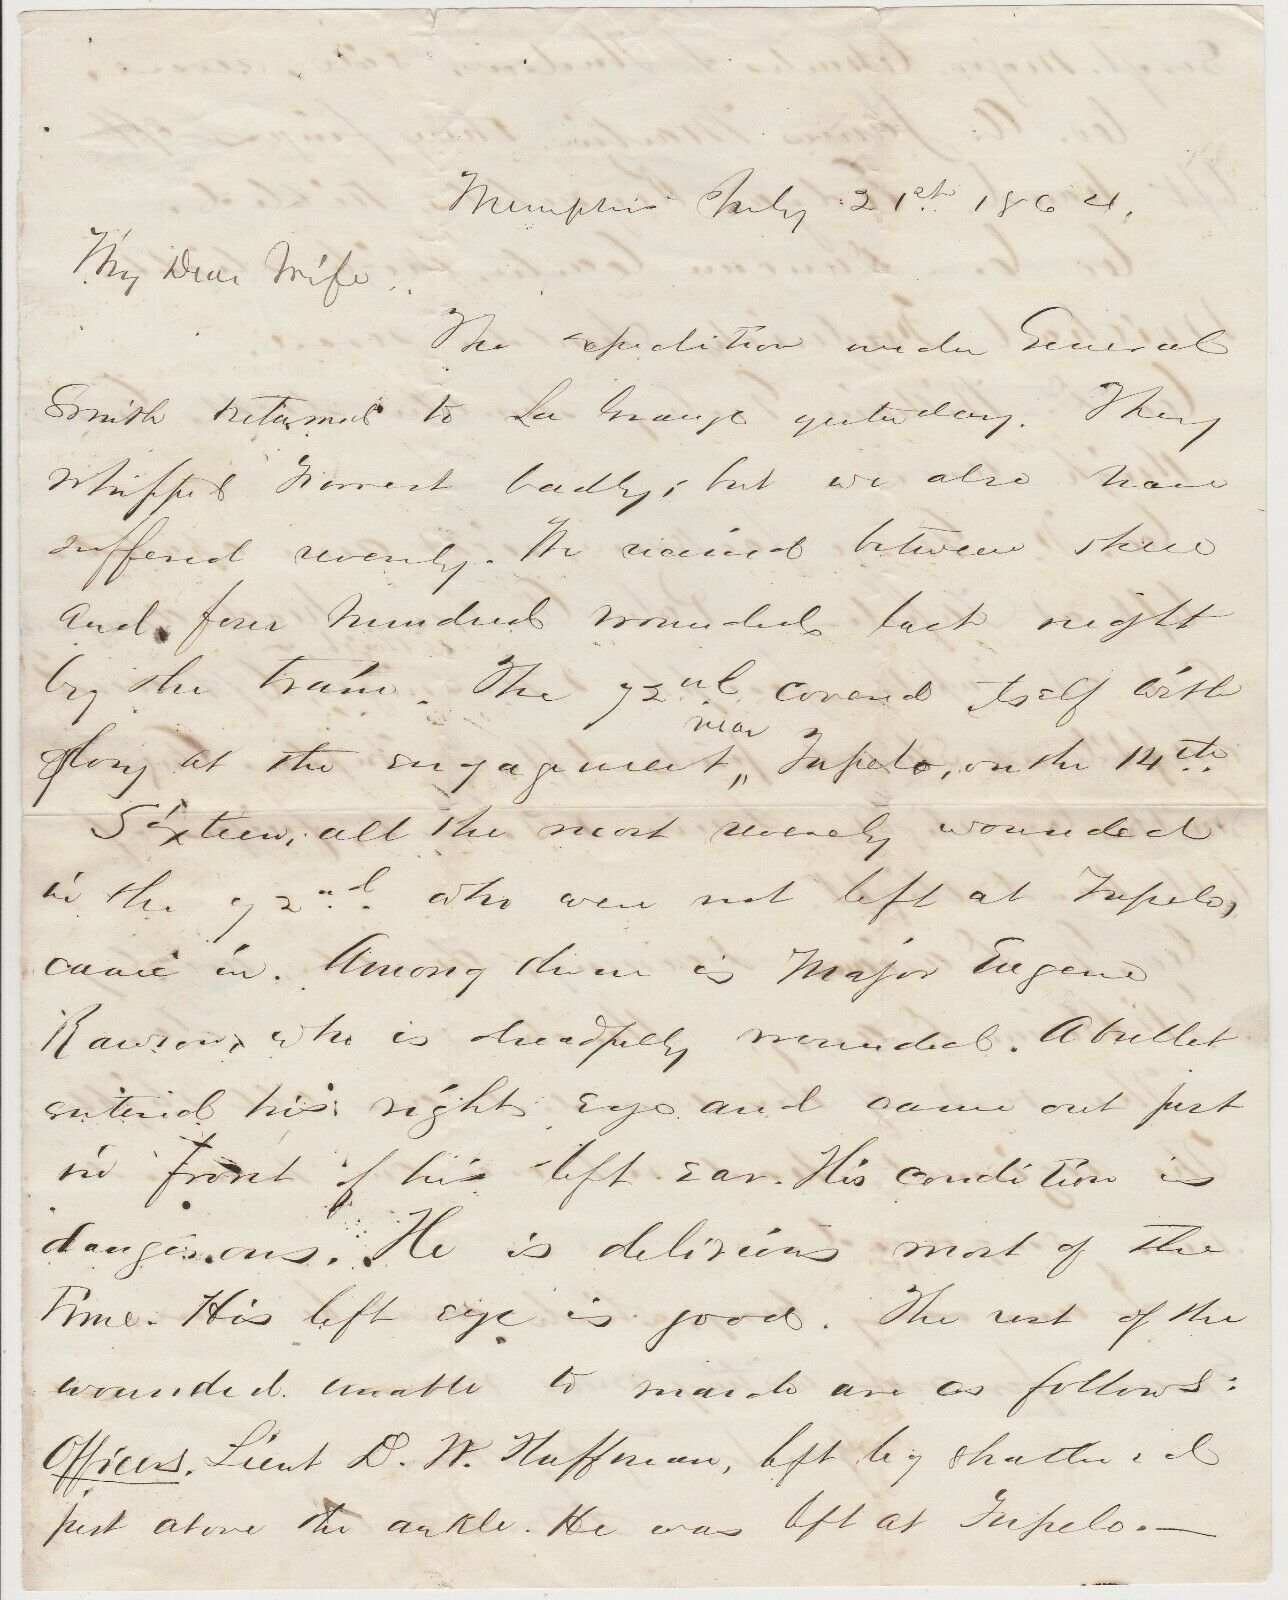 Memphis July 21st 1864.
My Dear Wife.
The expedition under General
Smith returned to La Grange yesterday. They
whipped Forrest badly, but we also have
suffered severely. We received between three
and four hundred wounded last night
by the train. The 72nd covered itself with
near
glory at the engagement,, Tupelo, on the 14th.
Sixteen, all the most severely wounded
in the 72nd. who were not left at Tupelo,
came in. Among them is Major Eugene
Rawson, who is dreadfully wounded. A bullet
entered his right eye and came out just
in front of his left ear. His condition is
dangerous. He is delirious most of the
time. His left eye is good. The rest of the
wounded unable to march are as follows:
Officers. Lieut D. W. Huffman, left leg shattered
just above the ankle. He was left at Tupelo.—